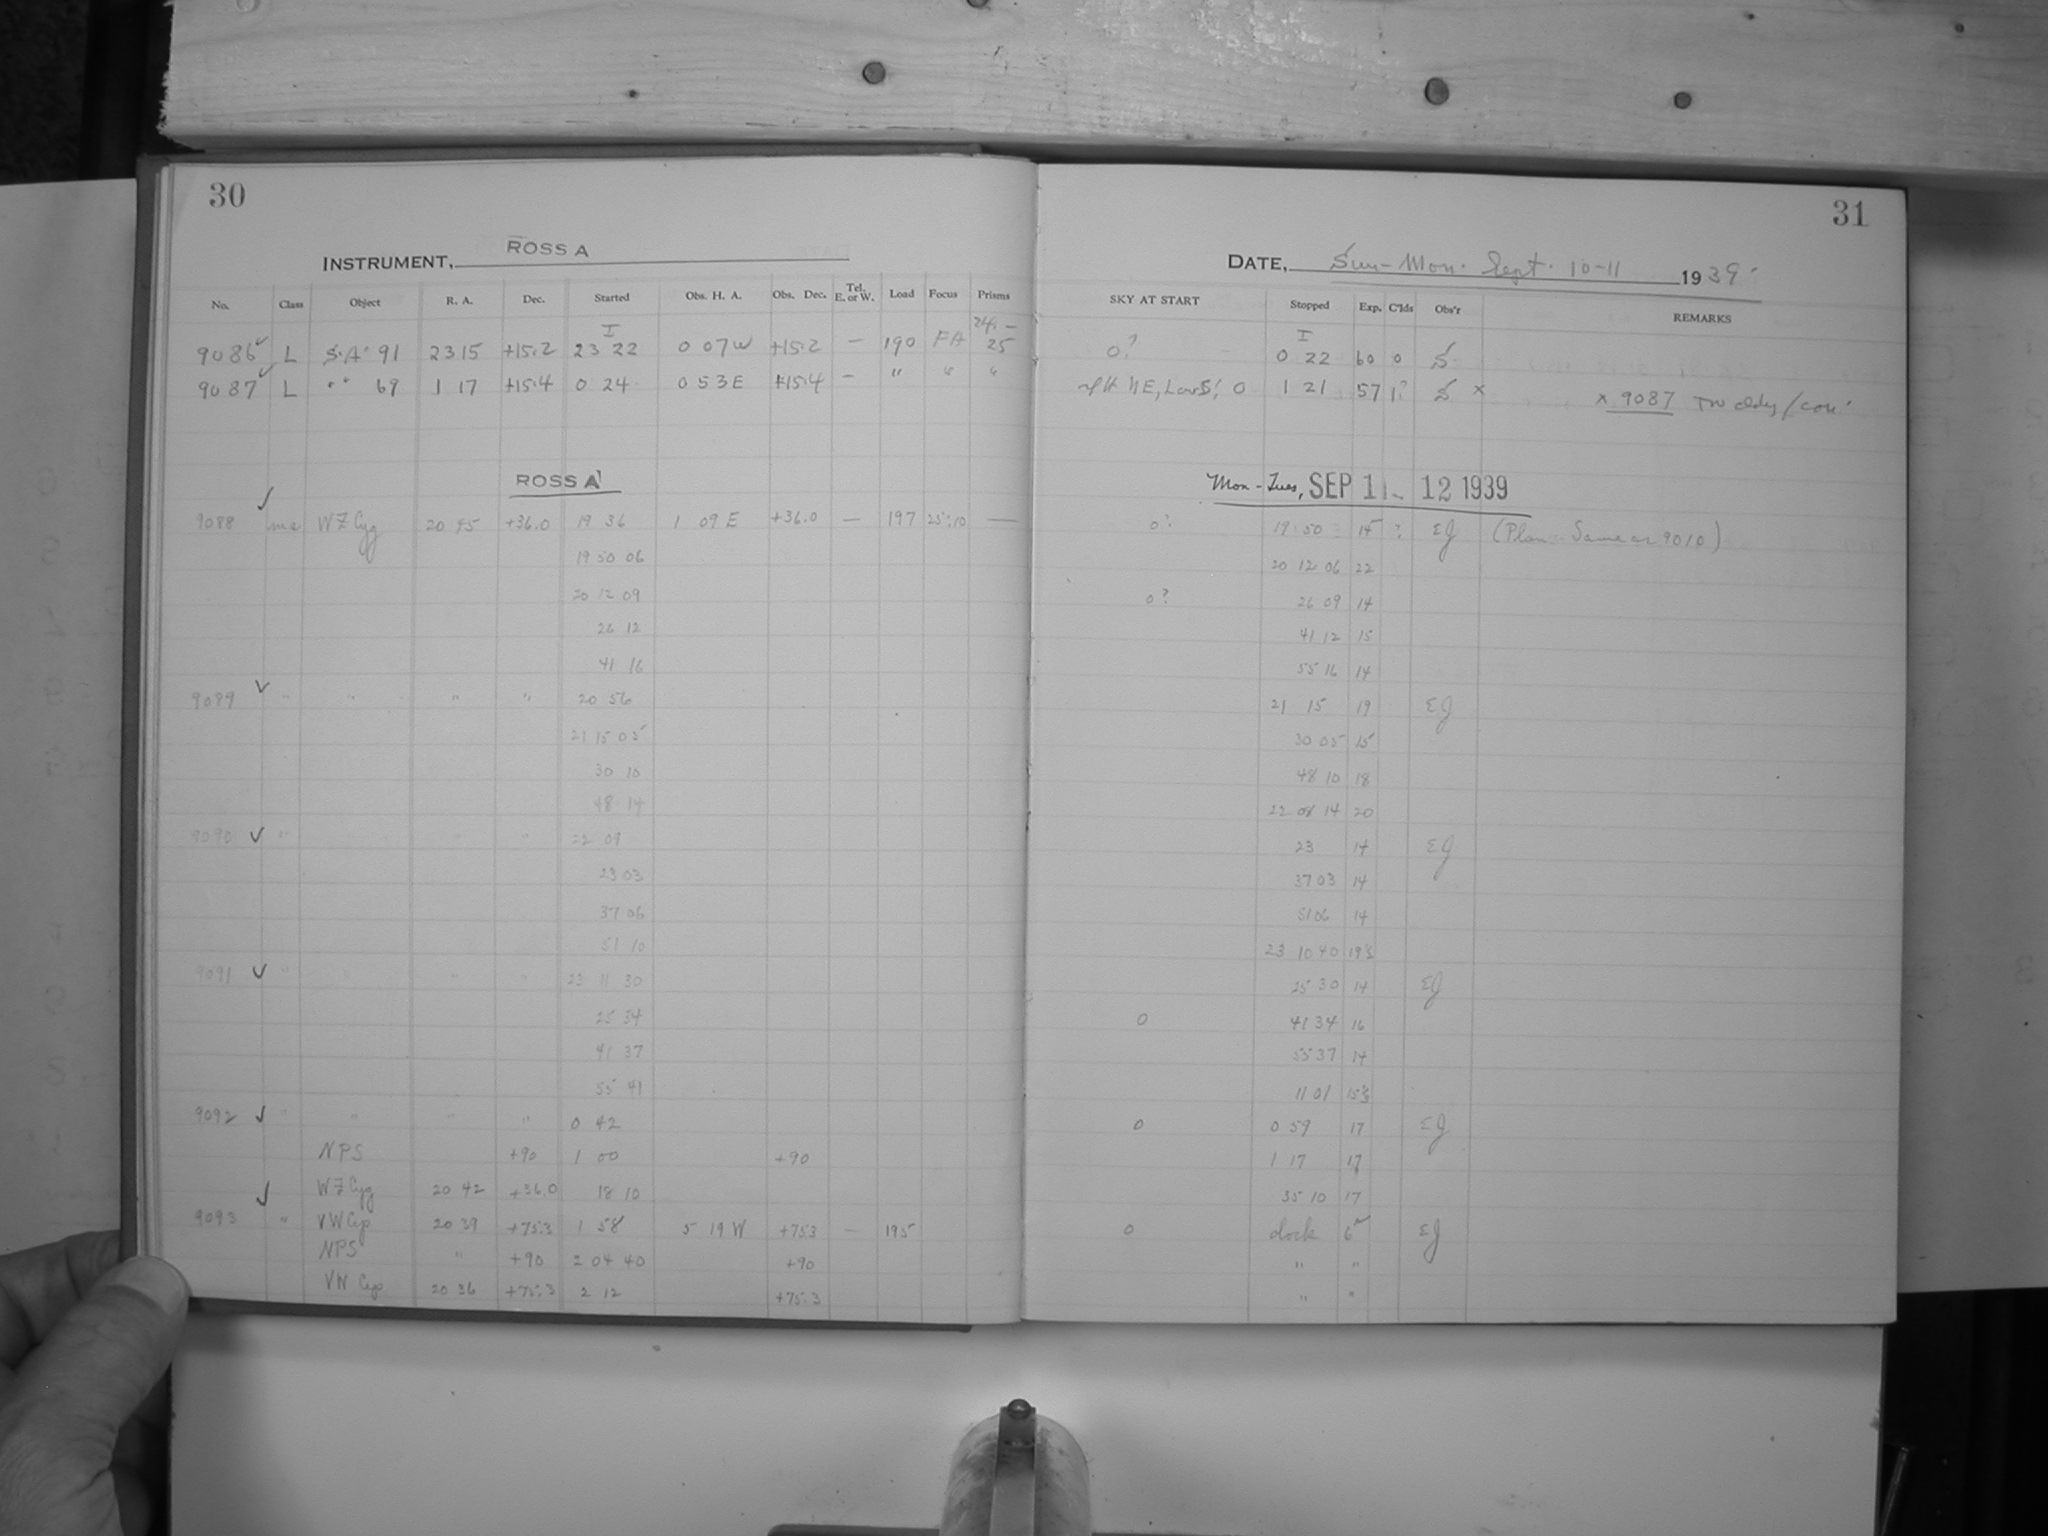 30
INSTRUMENT, ROSS A
No. Class Object R. A. Dec. Started Obs. H. A. Obs. Dec. Tel. E. or W. Load Focus Prisms
9086 L S.A. 91 23 15 +15.2 23 22 0 07 W +15.2 — 190 FA 24.- 25
9087 L " " 69 1 17 +15.4 0 24 0 53 E +15.4 — " " "
ROSS A
9088 ms WZ Cyg 20 45 +36.0 19 36 1 09 E +36.0 — 197 25:10 —
19 50 06
20 12 09
26 12
41 16
9089 " " " " 20 56
21 15 05
30 10
48 14
9090 " " " 22 09
23 03
37 06
51 10
9091 " " " " 23 11 30
25 34
41 37
55 41
9092 " " " " 0 42
NPS +90 1 00 +90
WZ Cyg 20 42 +36.0 18 10
9093 " VW Cep 20 39 +75.3 1 58 5 19 W +75.3 — 195
NPS " +90 2 04 40 +90
VW Cep 20 36 +75.3 2 12 +75.3
31
DATE, Sun-Mon. Sept. 10-11 1939.
SKY AT START Stopped Exp. C'lds Obs'r REMARKS
0? 0 22 60 0 S.
NE, Low S, 0 1 21 57 1? S x x 9087
Mon-Tues, SEP 11-12 1939
0? 19 50 14 ? EJ (Plan - Same as 9010)
20 12 06 22
0? 26 09 14
41 12 15
55 16 14
21 15 19 EJ
30 05 15
48 10 18
22 08 14 20
23 14 EJ
37 03 14
51 06 14
23 10 40 19.5
25 30 14 EJ
0 41 34 16
55 37 14
11 01
0 0 59 17 EJ
1 17 17
35 10 17
0 clock 6 EJ
" "
" "